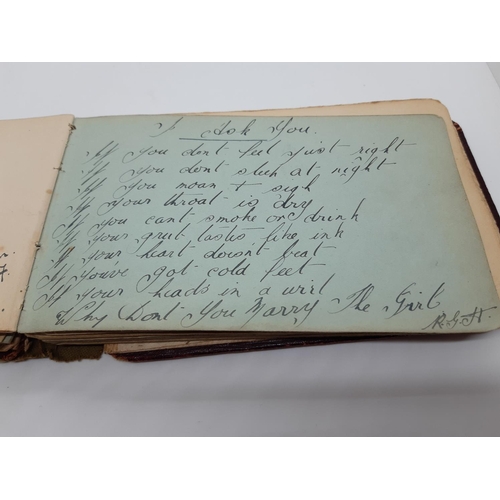 I Ask You.
If You dont feel just right
If You dont sleep at night
If You moan + sigh
If Your throat is dry
If You cant smoke or drink
If Your grub tastes like ink
If Your heart doesnt beat
If You've got cold feet
If Your head's in a wirl
Why Dont You Marry The Girl
R.G.H.